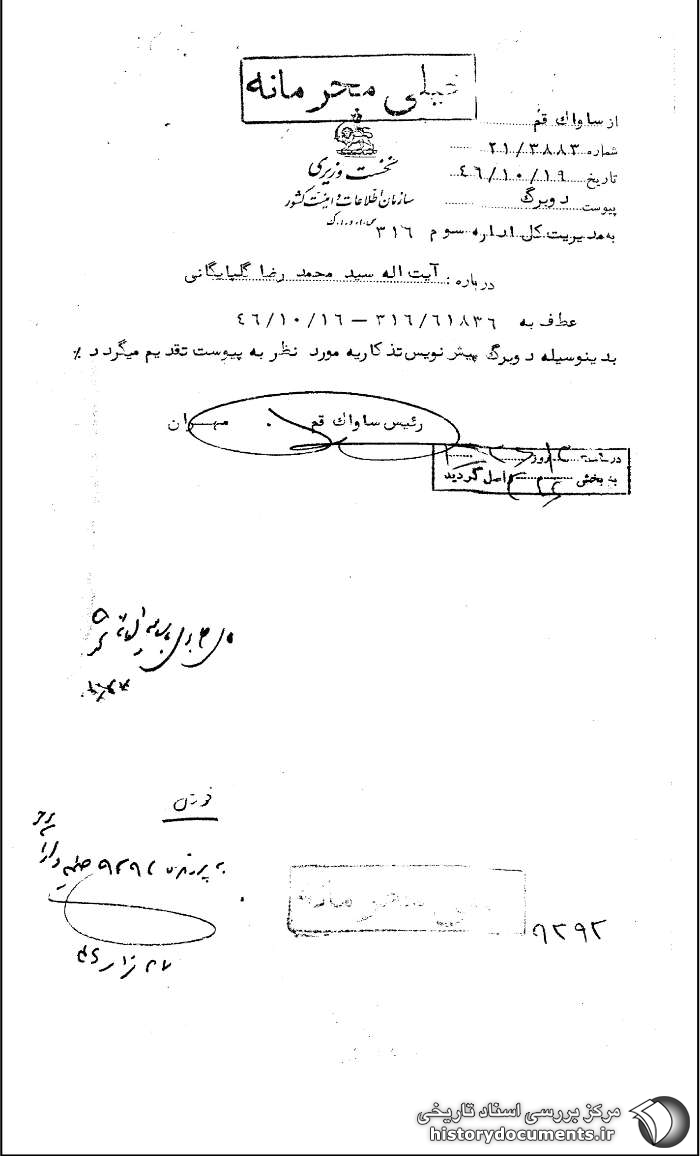 خیلی محرمانه
از ساواک قم
شماره ۲۱/۳۸۸۳
تاریخ ۴۶/۱۰/۱۹
پیوست دوبرگ
نخست وزیری
سازمان اطلاعات و امنیت کشور
س.ا.و.ا.ک
به مدیریت کل اداره سوم ۳۱۶
درباره : آیت اله سید محمد رضا گلپایگانی
عطف به ۳۱۶/۶۱۸۳۶ – ۴۶/۱۰/۱۶
بدینوسیله دوبرگ پیش نویس تذکاریه مورد نظر به پیوست تقدیم میگردد ٪
رئیس ساواک قم . مهران
در ساعت روز
به بخش واصل گردید
به پرونده ۹۲۹۲
خیلی محرمانه
۹۲۹۲
مرکز بررسی اسناد تاریخی
historydocuments.ir